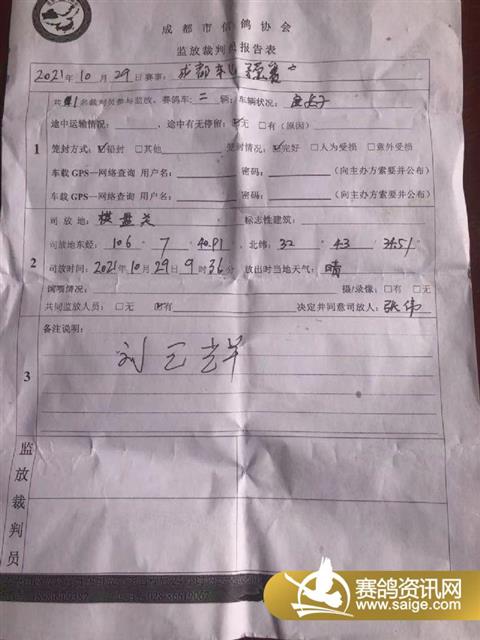 成都市信鸽协会
监放裁判员报告表
2021年10月29日赛事：成都
共 名裁判员参与监放，赛鸽车 二 辆；车辆状况：良好
途中运输情况： ，途中有无停留：☑无 □有（原因）
1 笼封方式：☑铅封 □其他 笼封情况：☑完好 □人为受损 □意外受损
车载 GPS—网络查询 用户名： 密码： （向主办方索要并公布）
车载 GPS—网络查询 用户名： 密码： （向主办方索要并公布）
司放地：棋盘关 标志性建筑：
司放地东经：106° 7' 40.91 北纬：32° 43' 34.51
2 司放时间：2021年10月29日9时36分 放出时当地天气：晴
回鸽情况： 摄/录像：□有 □无
共同监放人员：□无 ☑有 决定并同意司放人：张伟
备注说明：
刘
3
监放裁判员
赛鸽资讯网
www.saige.com